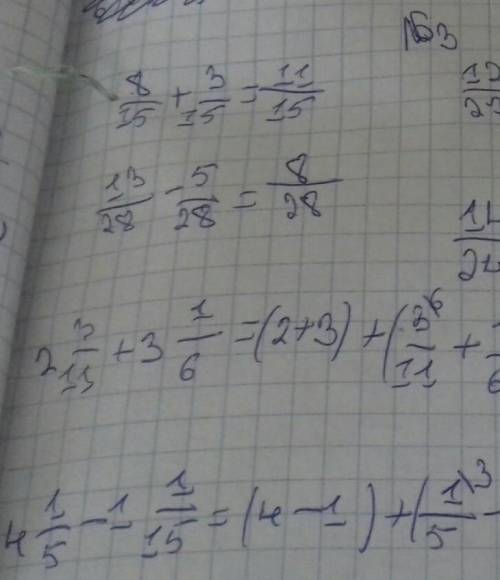 №3
8/15 + 3/15 = 11/15
13/28 - 5/28 = 8/28
2 3/11 + 3 1/6 = (2+3) + (3\6/11 + 1/6
4 1/5 - 1 1/15 = (4-1) + (1\3/5 -